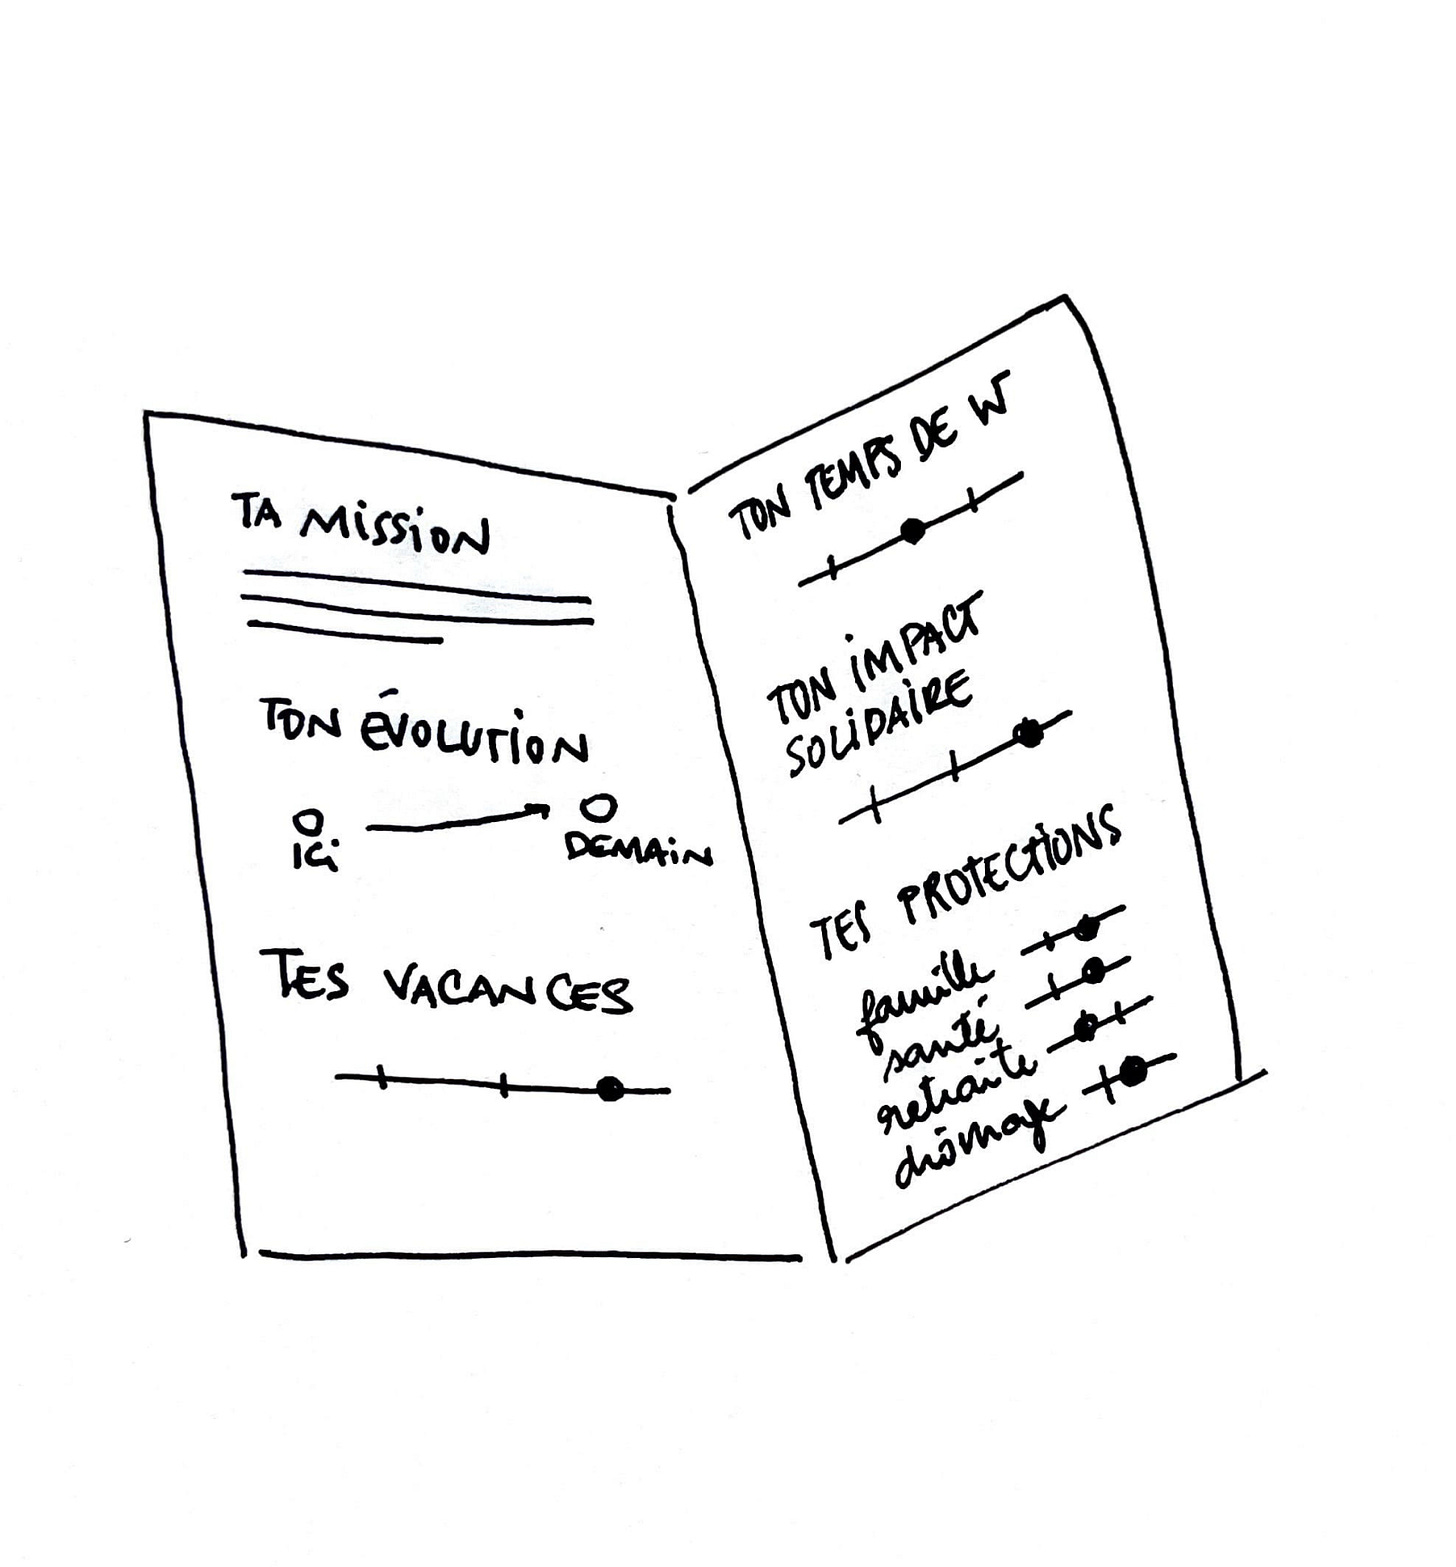 TA MiSSiON
TON ÉVOLUTiON
iCi
DEMAiN
TES VACANCES
TON TEMPS DE W
TON iMPACT
SOLiDAiRE
TES PROTECTiONS
famille
santé
retraite
chômage